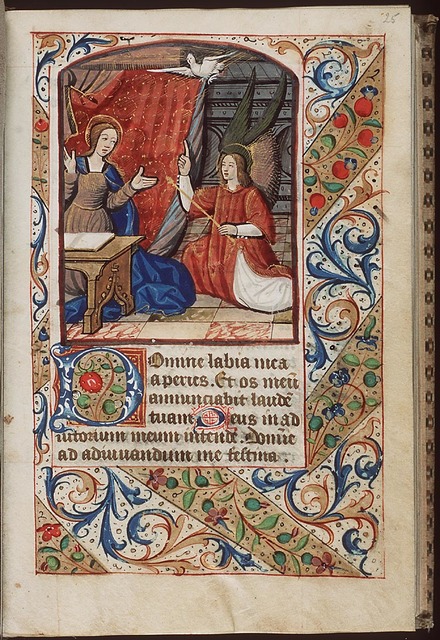 25
Domine labia mea
aperies. Et os meū
annunciabit laudē
tuam. Deus in ad
iutorium meum intende. Domīe
ad adiuuandum me festina.